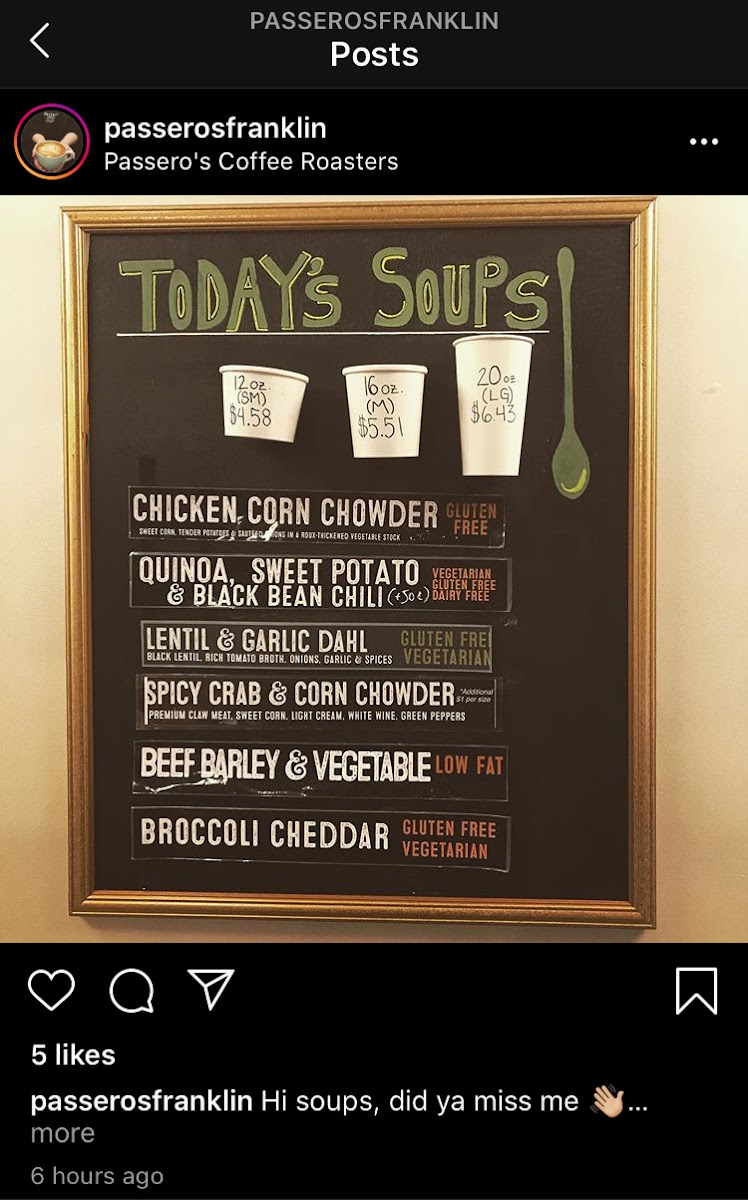 PASSEROSFRANKLIN
Posts
passerosfranklin
Passero's Coffee Roasters
TODAY'S SOUPS
12 oz.
(SM)
$4.58
16 oz.
(M)
$5.51
20 oz.
(LG)
$6.43
CHICKEN CORN CHOWDER GLUTEN FREE
SWEET CORN, TENDER POTATOES & IN A ROUX-THICKENED VEGETABLE STOCK
QUINOA, SWEET POTATO
& BLACK BEAN CHILI (+50¢)
VEGETARIAN
GLUTEN FREE
DAIRY FREE
LENTIL & GARLIC DAHL
BLACK LENTIL, RICH TOMATO BROTH, ONIONS, GARLIC & SPICES
GLUTEN FREE
VEGETARIAN
SPICY CRAB & CORN CHOWDER
*Additional
$1 per size
PREMIUM CLAW MEAT, SWEET CORN, LIGHT CREAM, WHITE WINE, GREEN PEPPERS
BEEF BARLEY & VEGETABLE LOW FAT
BROCCOLI CHEDDAR
GLUTEN FREE
VEGETARIAN
5 likes
passerosfranklin Hi soups, did ya miss me 👋🏼...
more
6 hours ago